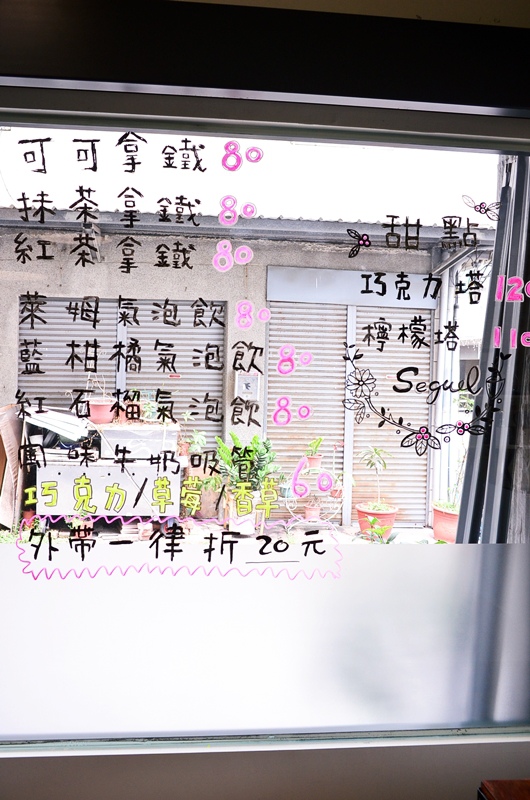 可可拿鐵 80
抹茶拿鐵 80
紅茶拿鐵 80
萊姆氣泡飲 80
藍柑橘氣泡飲 80
紅石榴氣泡飲 80
風味牛奶吸管
巧克力/草莓/香草 60
外帶一律折 20 元
甜點
巧克力塔 120
檸檬塔 110
Seguel